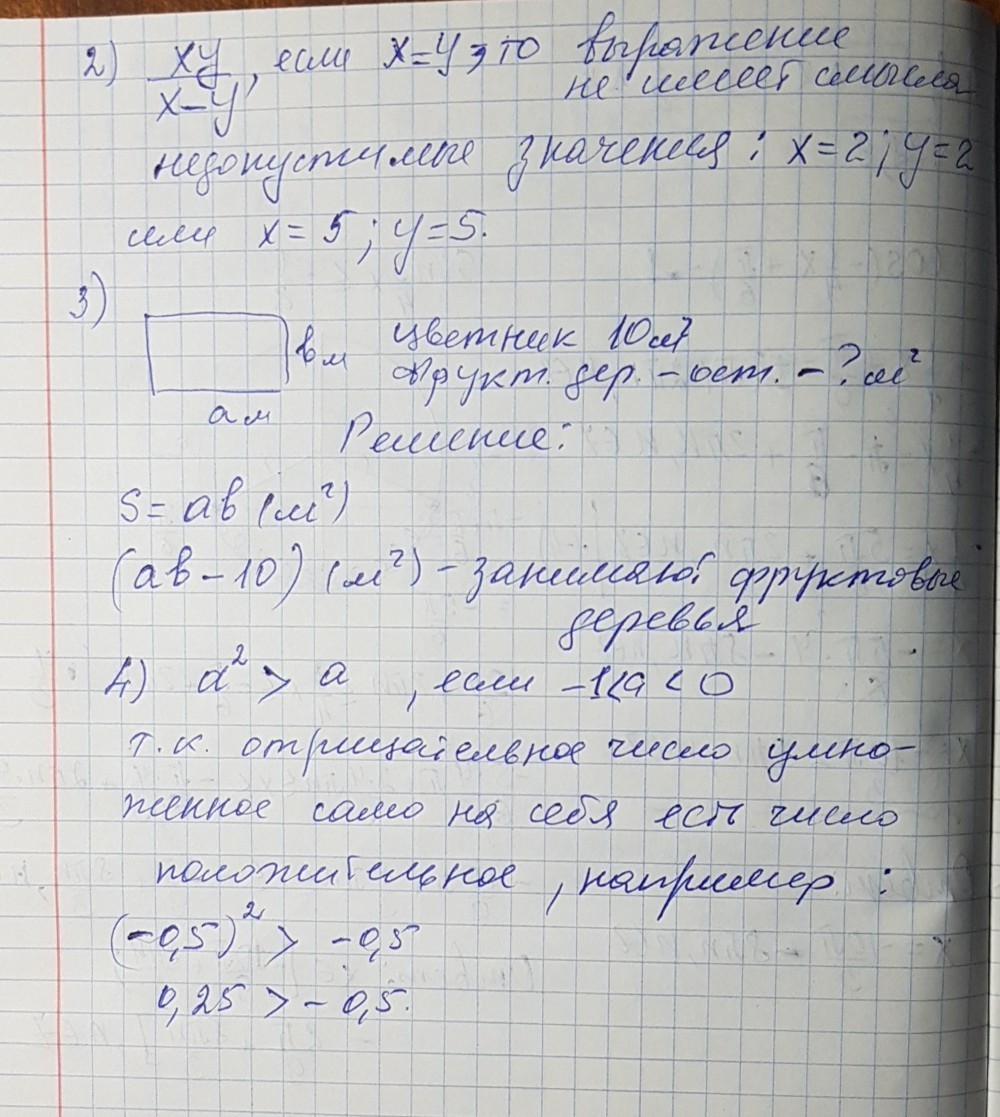 2) xy/(x-y), если x=y, то выражение
не имеет смысла
недопустимые значения: x=2; y=2
или x=5; y=5.
3)
вм цветник 10м²
ам Фрукт. дер. - ост. - ? м²
Решение:
S = ав (м²)
(ав - 10) (м²) - занимают фруктовые
деревья
4) a² > a, если -1<a<0
т.к. отрицательное число умно-
женное само на себя есть число
положительное, например:
(-0,5)² > -0,5
0,25 > -0,5.